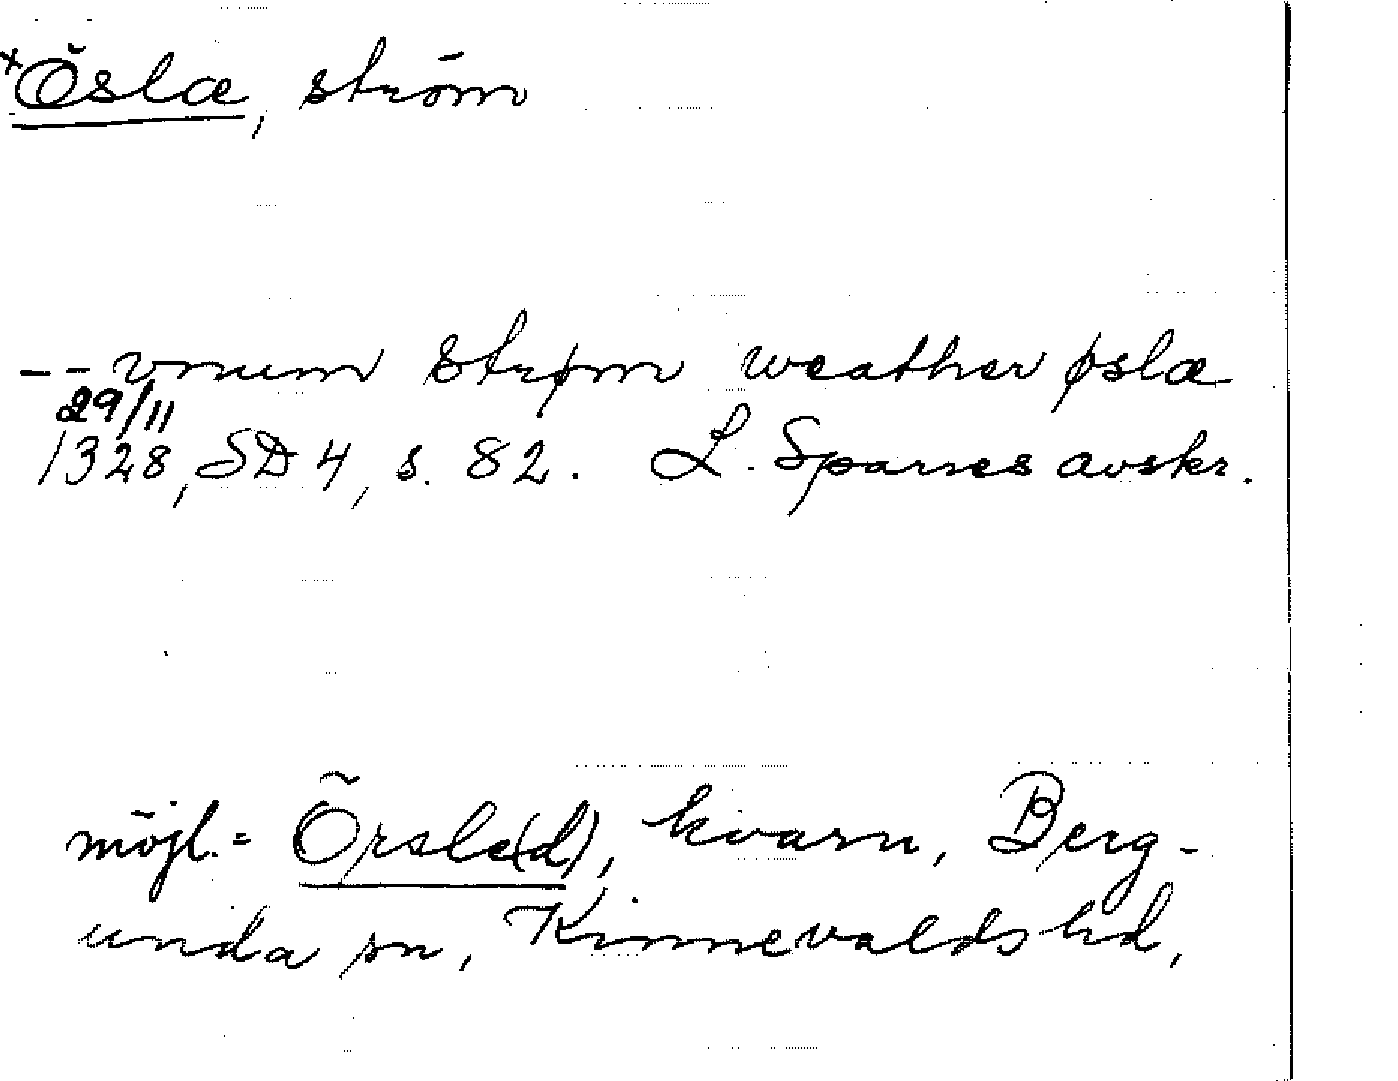 ×Öslæ, ström
-- vrnum strøm weather øslæ
29/11
1328, SD 4, s. 82. L. Sparres avskr.
möjl. = Örsle(d), kvarn, Berg-
unda sn, Kinnevalds hd,